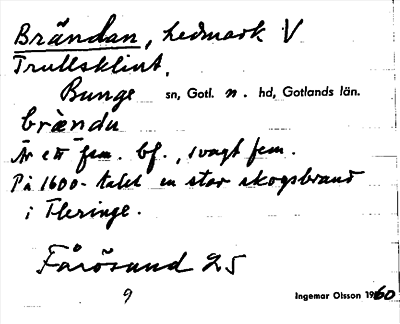 Brändan, hedmark V
Trullsklint.
Bunge sn, Gotl. n. hd, Gotlands län.
brändu
Är ett fem. bf., svagt fem.
På 1600-talet en stor skogsbrand
i Fleringe.
Fårösund 25
9 Ingemar Olsson 1960